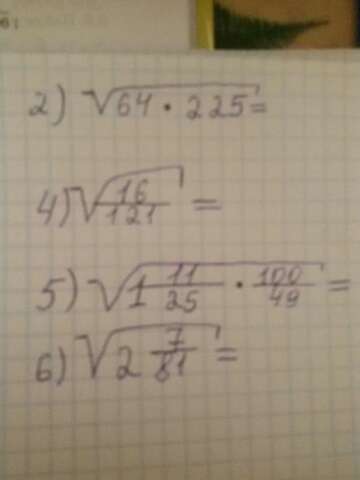 2) √64 · 225 =
4) √16/121 =
5) √1 11/25 · 100/49 =
6) √2 7/81 =